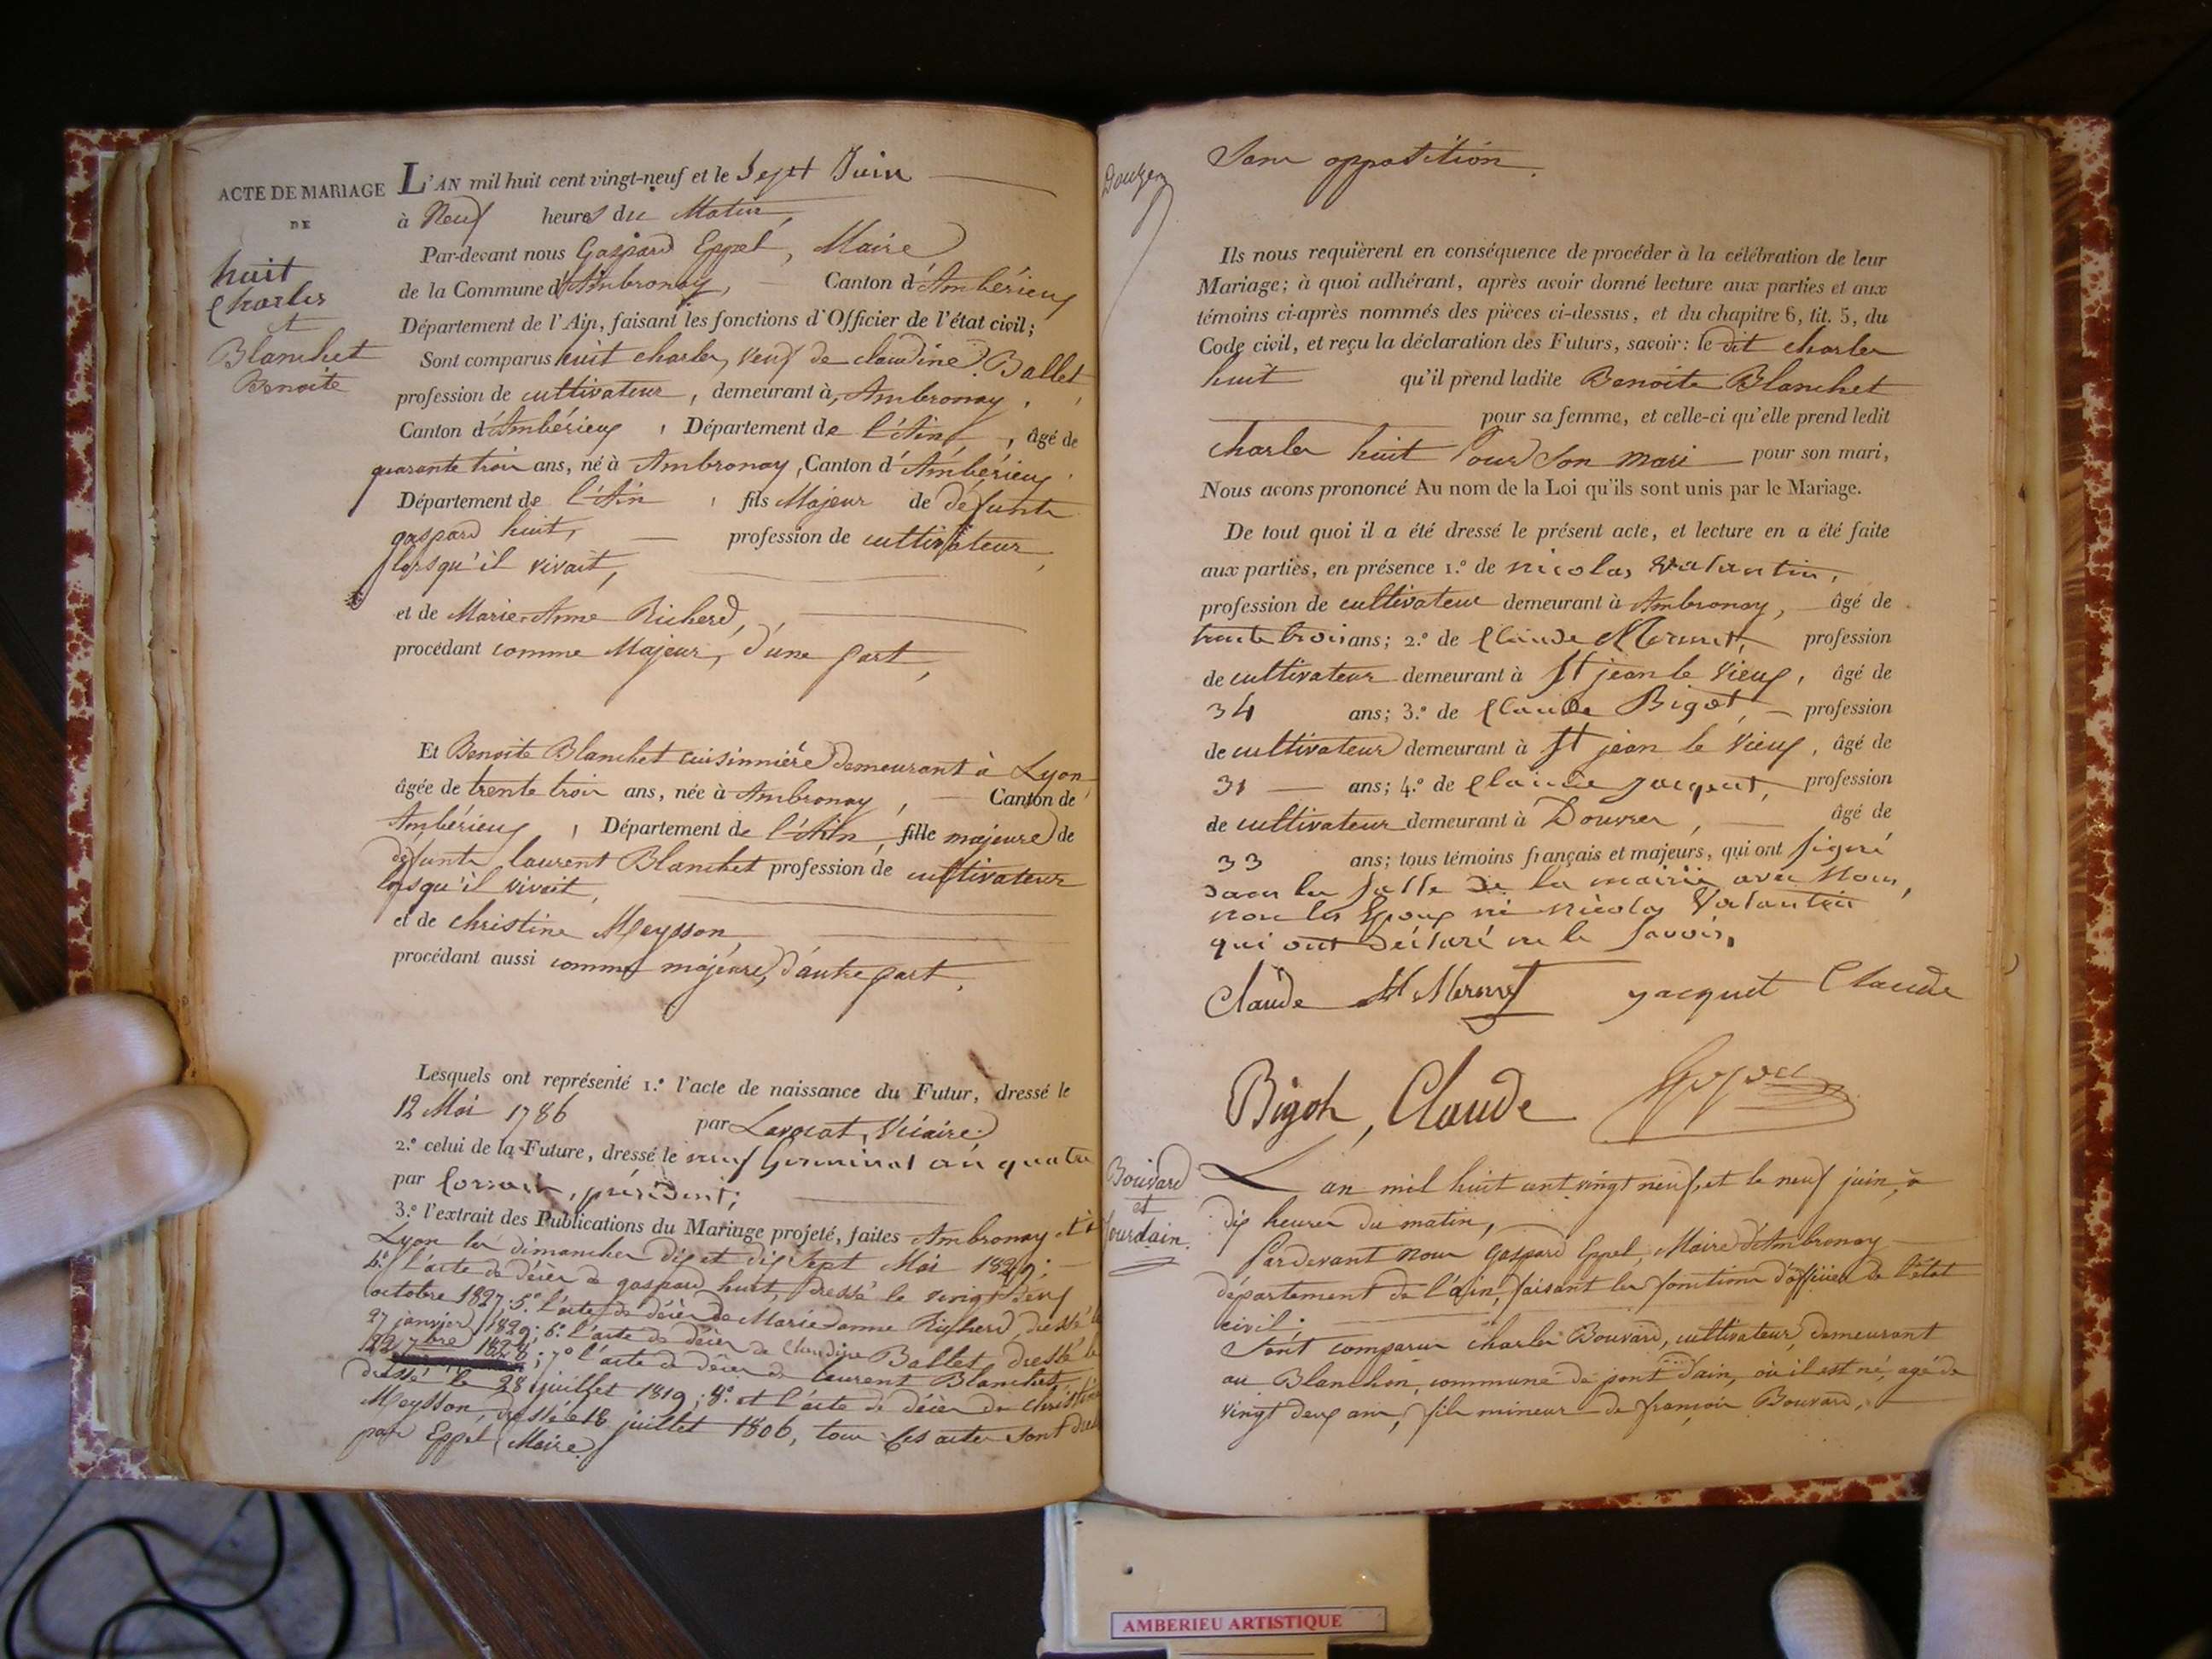 ACTE DE MARIAGE
DE
huit
Charles
et
Blanchet
Benoite
L'AN mil huit cent vingt-neuf et le Sept Juin
à Neuf heures du Matin,
Par-devant nous Gaspard Eppel, Maire
de la Commune d'Ambronay, Canton d'Ambérieux
Département de l'Ain, faisant les fonctions d'Officier de l'état civil;
Sont comparus huit charles, veuf de claudine Ballet
profession de cultivateur, demeurant à, Ambronay,
Canton d'Ambérieux, Département de l'Ain, âgé de
quarante trois ans, né à Ambronay, Canton d'Ambérieux
Département de l'Ain, fils Majeur de défunts
gaspard huit, profession de cultivateur,
lorsqu'il vivait,
et de Marie-Anne Richerd,
procédant comme Majeur, d'une part,
Et Benoite Blanchet cuisinnière demeurant à Lyon
âgée de trente trois ans, née à Ambronay, Canton de
Ambérieux, Département de l'Ain, fille majeure de
défunts laurent Blanchet profession de cultivateur
lorsqu'il vivait,
et de christine Meysson
procédant aussi comme majeure, d'autre part,
Lesquels ont représenté 1.º l'acte de naissance du Futur, dressé le
12 Mai 1786 par Lavocat, Vicaire
2.º celui de la Future, dressé le neuf Germinal an quatre
par président;
3.º l'extrait des Publications du Mariage projeté, faites Ambronay et à
Lyon les dimanches dix et dix sept Mai 1829;
4.º l'acte de décès de gaspard huit, dressé le vingt deux
octobre 1827; 5.º l'acte de décès de Marie anne Richerd, dressé le
27 janvier 1829; 6.º l'acte de décès de Claudine Ballet dressé le
22 7bre 1828; 7º l'acte de décès de laurent Blanchet,
dressé le 28 juillet 1819; 8.º et l'acte de décès de christine
Meysson, dressé le 18 juillet 1806, tous ces actes sont
par Eppel Maire
Sans opposition.
Ils nous requièrent en conséquence de procéder à la célébration de leur
Mariage; à quoi adhérant, après avoir donné lecture aux parties et aux
témoins ci-après nommés des pièces ci-dessus, et du chapitre 6, tit. 5, du
Code civil, et reçu la déclaration des Futurs, savoir: le dit charles
huit qu'il prend ladite Benoite Blanchet
pour sa femme, et celle-ci qu'elle prend ledit
charles huit Pour Son mari pour son mari,
Nous avons prononcé Au nom de la Loi qu'ils sont unis par le Mariage.
De tout quoi il a été dressé le présent acte, et lecture en a été faite
aux parties, en présence 1.º de nicolas Valantin,
profession de cultivateur demeurant à Ambronay, âgé de
trente trois ans; 2.º de Claude Mermet, profession
de cultivateur demeurant à St jean le Vieux, âgé de
34 ans; 3.º de Claude Bigot, profession
de cultivateur demeurant à St jean le Vieux, âgé de
31 ans; 4.º de Claude Jacquet, profession
de cultivateur demeurant à Douvres, âgé de
33 ans; tous témoins français et majeurs, qui ont signé
dans la salle de la mairie avec Nous,
non les Epoux ni nicolas Valantin
qui ont déclaré ne le savoir,
Claude Mermet jacquet Claude
Bigoh, Claude
Bouvard
et
Jourdain
L'an mil huit cent vingt neuf, et le neuf juin, à
dix heures du matin,
Pardevant nous Gaspard Eppel, Maire d'Ambronay
département de l'ain, faisant les fonctions d'officier de l'état
civil:
Sont comparus charles Bouvard, cultivateur, demeurant
au Blanchon, commune de pont d'ain, où il est né, agé de
vingt deux ans, fils mineur de françois Bouvard,
AMBERIEU ARTISTIQUE